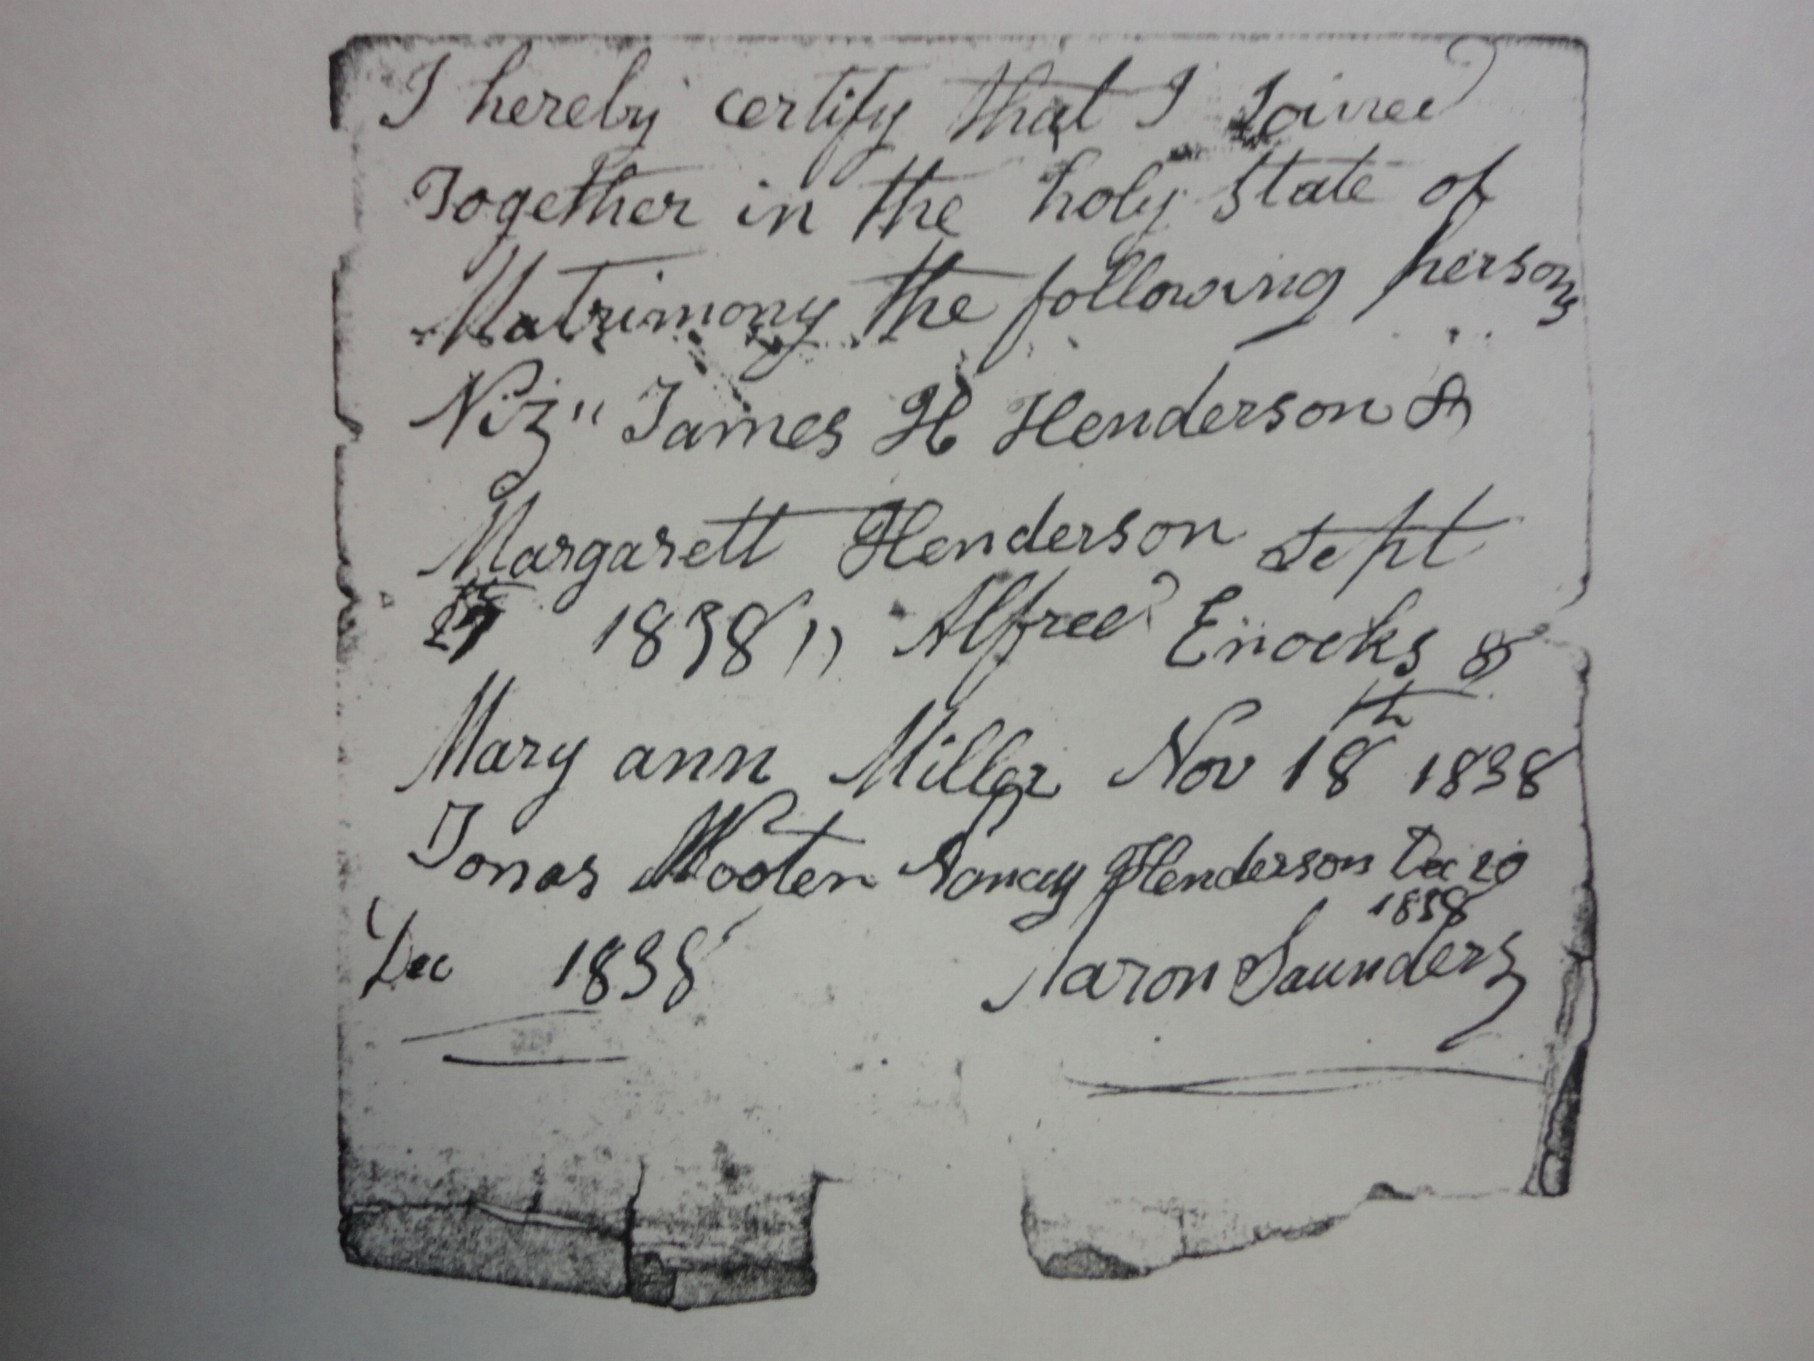 I hereby certify that I Joined
Together in the holy state of
Matrimony the following persons
Viz" James H Henderson &
Margarett Henderson Sept
27th 1838 ,, Alfred Enocks &
Mary ann Miller Nov 18th 1838
Jonas Wooten Nancy Henderson Dec 20
1838
Dec 1838 Aaron Saunders